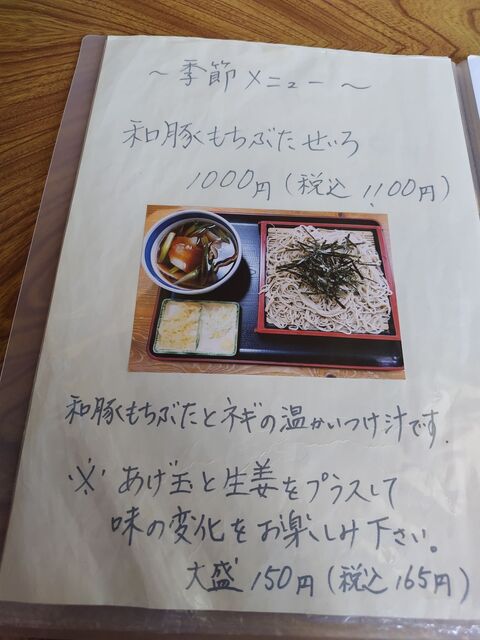 ～季節メニュー～
和豚もちぶたせいろ
1000円(税込1,100円)
和豚もちぶたとネギの温かいつけ汁です.
※あげ玉と生姜をプラスして
味の変化をお楽しみ下さい。
大盛150円(税込165円)